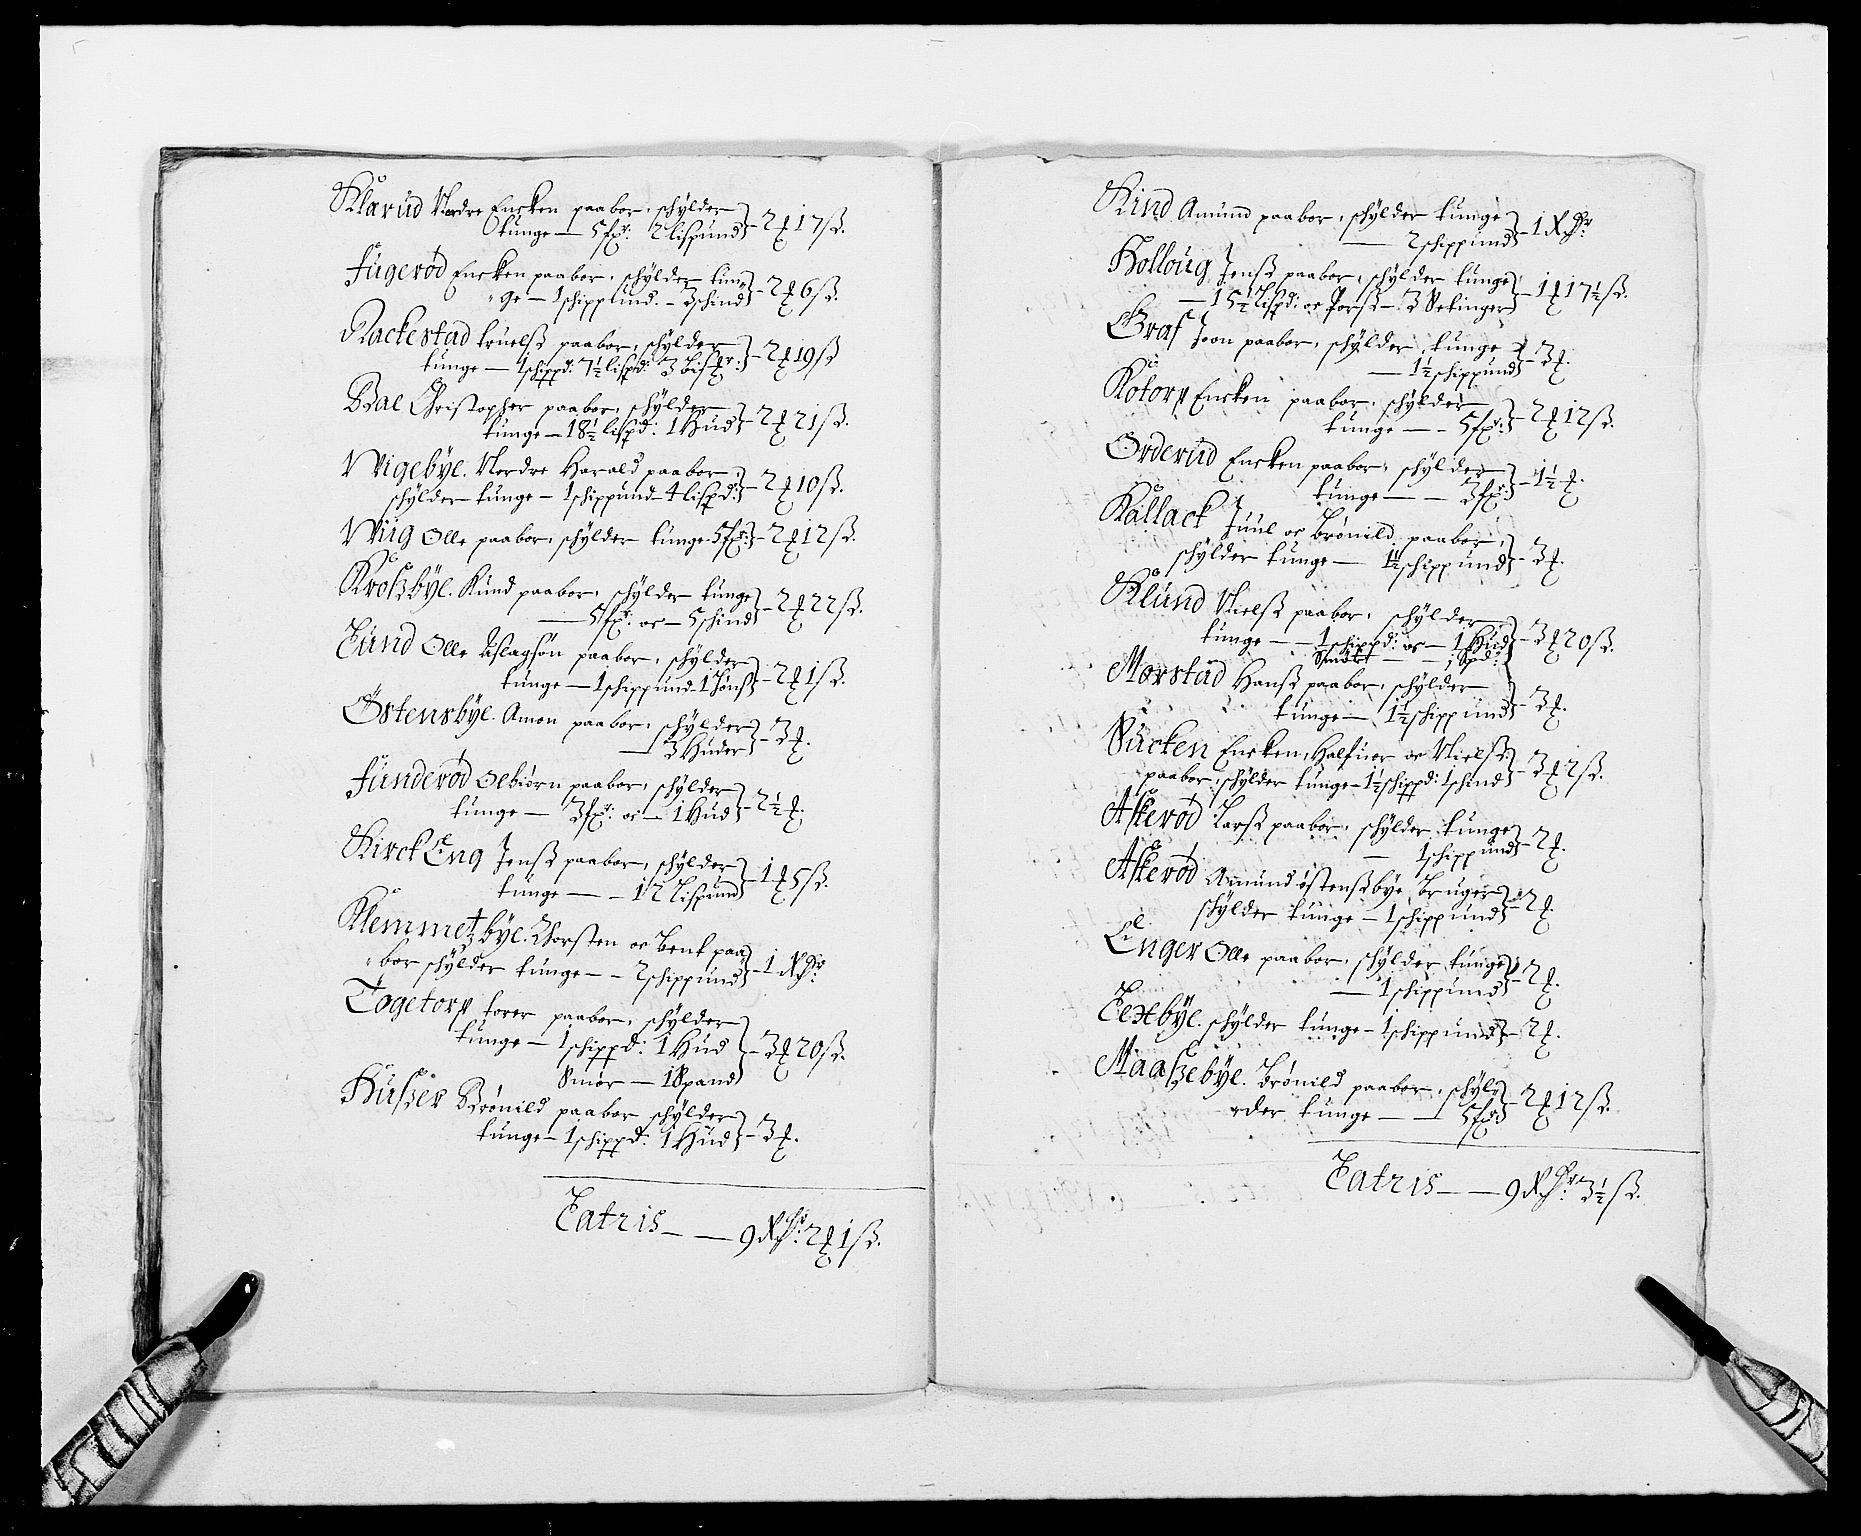 Klarud Nordre Encken paabor, schylder
tunge — 5 fr: 2 lispund — 2 ƺ 17 ß.
Fugerød Encken paabor, schylder tun
ge — 1 schippund — 3 schind — 2 ƺ 6 ß.
Rackestad truelß paabor, schylder
tunge — 1 schippd: 7½ lispd: 3 bißfr: — 2 ƺ 19 ß
Bae Christopher paabor, schylder
tunge — 18½ lispd: 1 Hud — 2 ƺ 21 ß.
Wigebÿe. Nordre Harald paabor,
schylder tunge — 1 schippund 4 lispd: — 2 ƺ 10 ß.
Wiig Olle paabor, schylder tunge 5 fr: — 2 ƺ 12 ß.
Kroßbÿe. Knud paabor, schylder tunge
— 5 fr: oc — 5 schind — 2 ƺ 22 ß.
Lund Olle Aslagsøn paabor, schylder
tunge — 1 schippund — 2 ƺ 1 ß.
Østensbÿe. Amon paabor, schylder
— 3 Huder — 3 ƺ.
Funderød Olbiørn paabor, schylder
tunge — 3 fr: oc — 1 Hud — 2½ ƺ.
Kirck Eng Jenß paabor, schylder
tunge — 12 Lispund — 1 ƺ 5 ß.
Klemmetzbÿe. Thorsten oc Bent paa
bor schylder tunge — 2 schippund — 1 Rdr
Togetorp torer paabor, schylder
tunge — 1 schippd: 1 Hud — 3 ƺ 20 ß.
Smør — 1 Spand
Hußer Brønild paabor schylder
tunge — 1 schippd: 1 Hud — 3 ƺ.
Latris — 9 Rdr 2 ƺ 1 ß.
Kind Amund paabor, schylder tunge
— 2 schippund — 1 Rdr
Kolloug Jenß paabor, schylder tunge
— 15½ lispd: oc Torsk — 3 Setinger — 1 ƺ 17½ ß.
Graf Joon paabor, schylder tunge
— 1½ schippund — 3 ƺ.
Kotorp Encken paabor, schylder
tunge — 5 fr: — 2 ƺ 12 ß.
Orderud Encken paabor, schylder
tunge — 3 fr: — 1½ ƺ.
Kallack Juul oc Brønild paabor,
schylder tunge — 1½ schippund — 3 ƺ.
Klund Nielß paabor, schylder
tunge — 1 schippd: oc — 1 Hud — 3 ƺ 20 ß.
Smør — 1 Spd:
Morstad Hanß paabor, schylder
tunge — 1½ schippund — 3 ƺ.
Sucken Encken, Halfuor oc Nielß
paabor, schylder tunge — 1½ schippd: 1 schind — 3 ƺ 2 ß.
Askerød Larß paabor, schylder tunge
— 1 schippund — 2 ƺ.
Askerød Amund østenßbye bruger
schylder tunge — 1 schippund — 2 ƺ.
Enger Olle paabor, schylder tunge
— 1 schippund — 2 ƺ.
Lextbÿe. schylder tunge — 1 schippund — 2 ƺ.
Maaßebÿe. Brønild paabor, schyl
der tunge — 5 fr: — 2 ƺ 12 ß.
Latris — 9 Rdr 3½ ß.